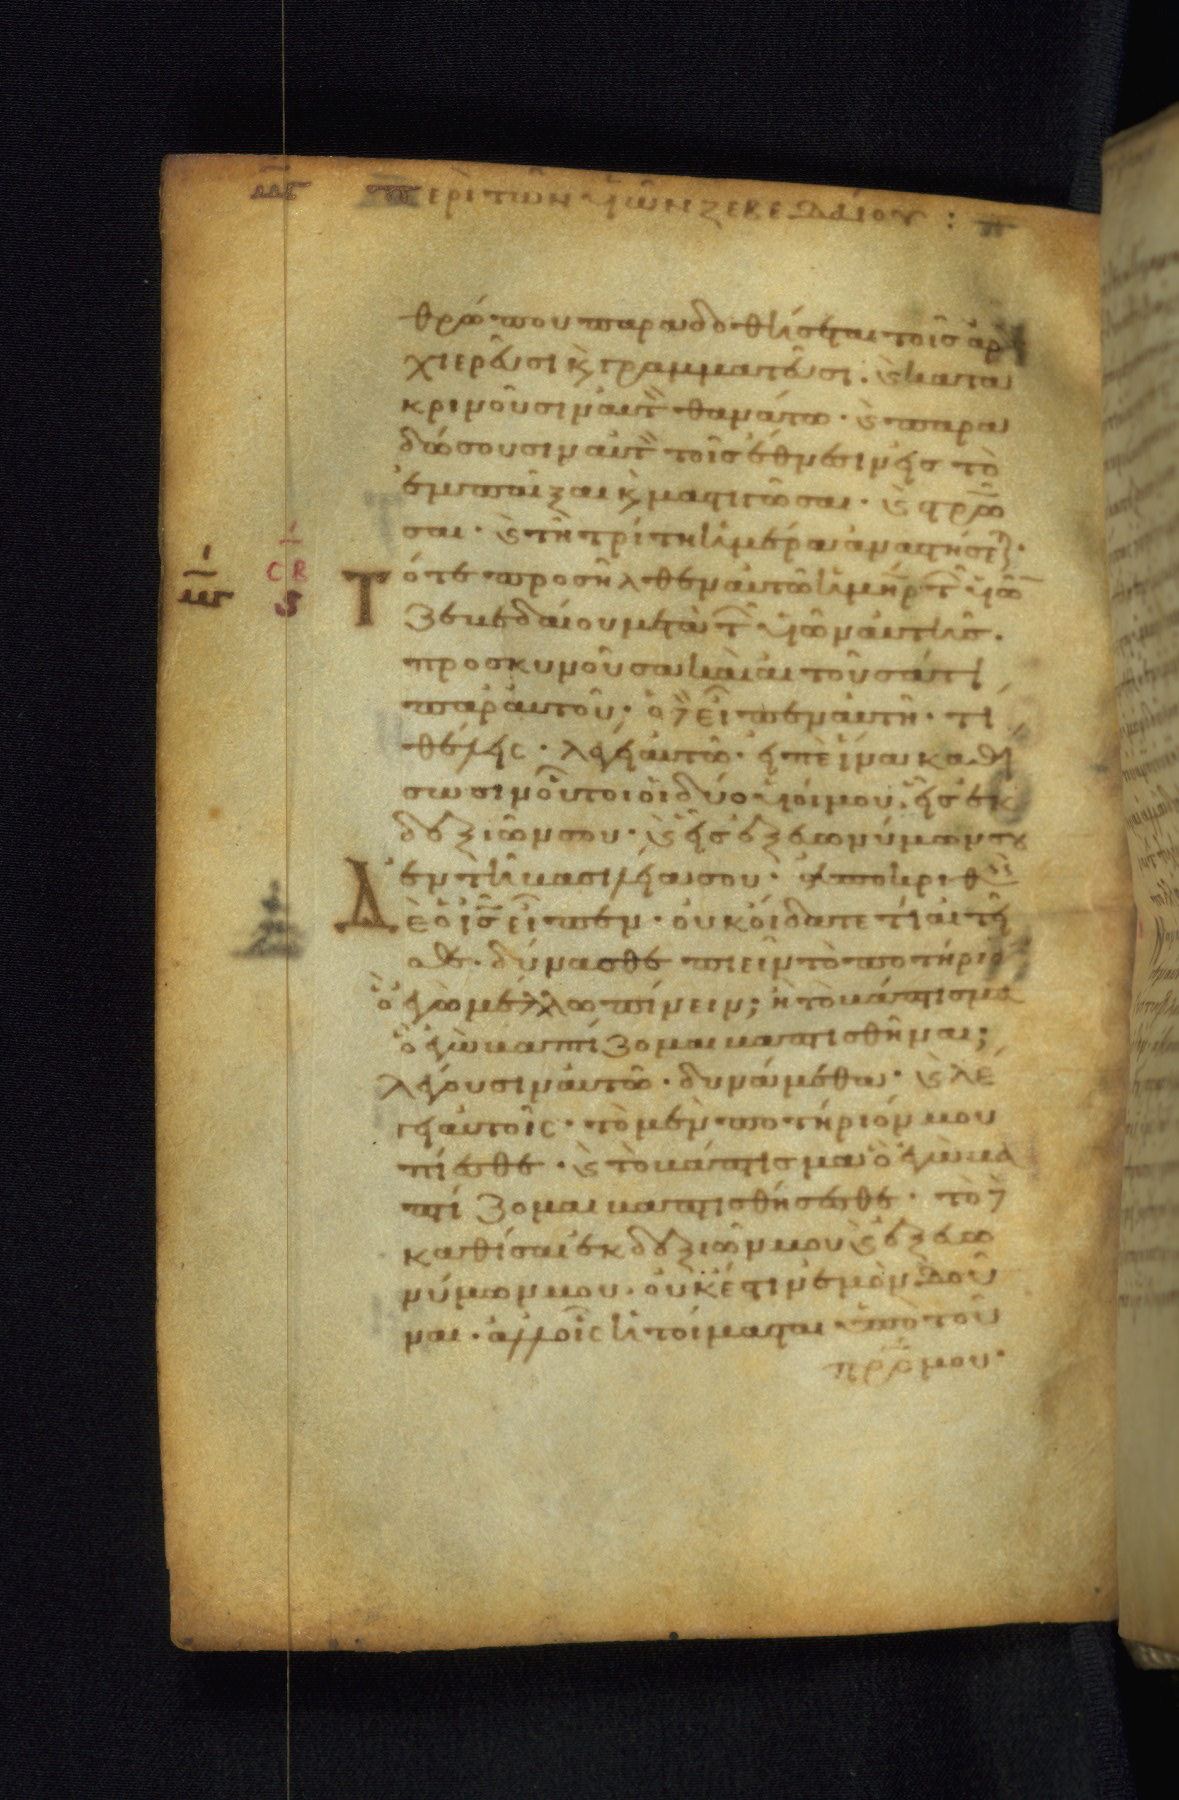 περὶ τῶν υἱῶν ζεβεδαίου :
θρώπου παραδοθήσεται τοῖς ἀρ
χιερεῦσι κ γραμματεῦσι. κατα
κρινοῦσιν αυτ θανάτω · παρα
δώσουσιν αυτ τοῖς ἔθνεσιν εἰς τὸ
ἐμπαῖξαι κ μαστιγῶσαι · στρῶ
σαι · τῆ τρίτη ἡμέρα ἀναστήσετ ·
Τότε προσῆλθεν αυτῶ ἡ μηρ τ υἱῶ
ζεβεδαίου μετὰ τ υἱῶν αυτῆς ·
προσκυνοῦσα καὶ αἰτοῦσά τι
παρ αυτοῦ · ὁ δ εἶπεν αυτῆ · τί
θέλεις · λέγει αυτῶ · εἰπὲ ἵνα καθί
σωσιν οὗτοι οἱ δύο υἱοί μου · εἷς ἐκ
δεξιῶν σου · εἷς ἐξ εὐωνύμων σου
ἐν τῆ βασιλεία σου · ἀποκριθεὶς
Δὲ ὁ ις εἶπεν · ουκ οἴδατε τί αἰτεῖ
σθε · δύνασθε πιεῖν τὸ ποτήριο
ὃ ἐγὼ μέλλω πίνειν; ἢ τὸ βάπτισμα
ὃ ἐγὼ βαπτίζομαι βαπτισθῆναι;
λέγουσιν αυτῶ · δυνάμεθα · λέ
γει αυτοῖς · τὸ μὲν ποτήριόν μου
πίεσθε · τὸ βάπτισμα ὃ ἐγὼ βα
πτίζομαι βαπτισθήσεσθε · τὸ δ
καθίσαι ἐκ δεξιῶν μου ἐξ εὐω
νύμων μου · οὐκ ἔστιν ἐμὸν δοῦ
ναι · ἀλλ οἷς ἡτοίμασται ὑπὸ τοῦ
πρς μου ·